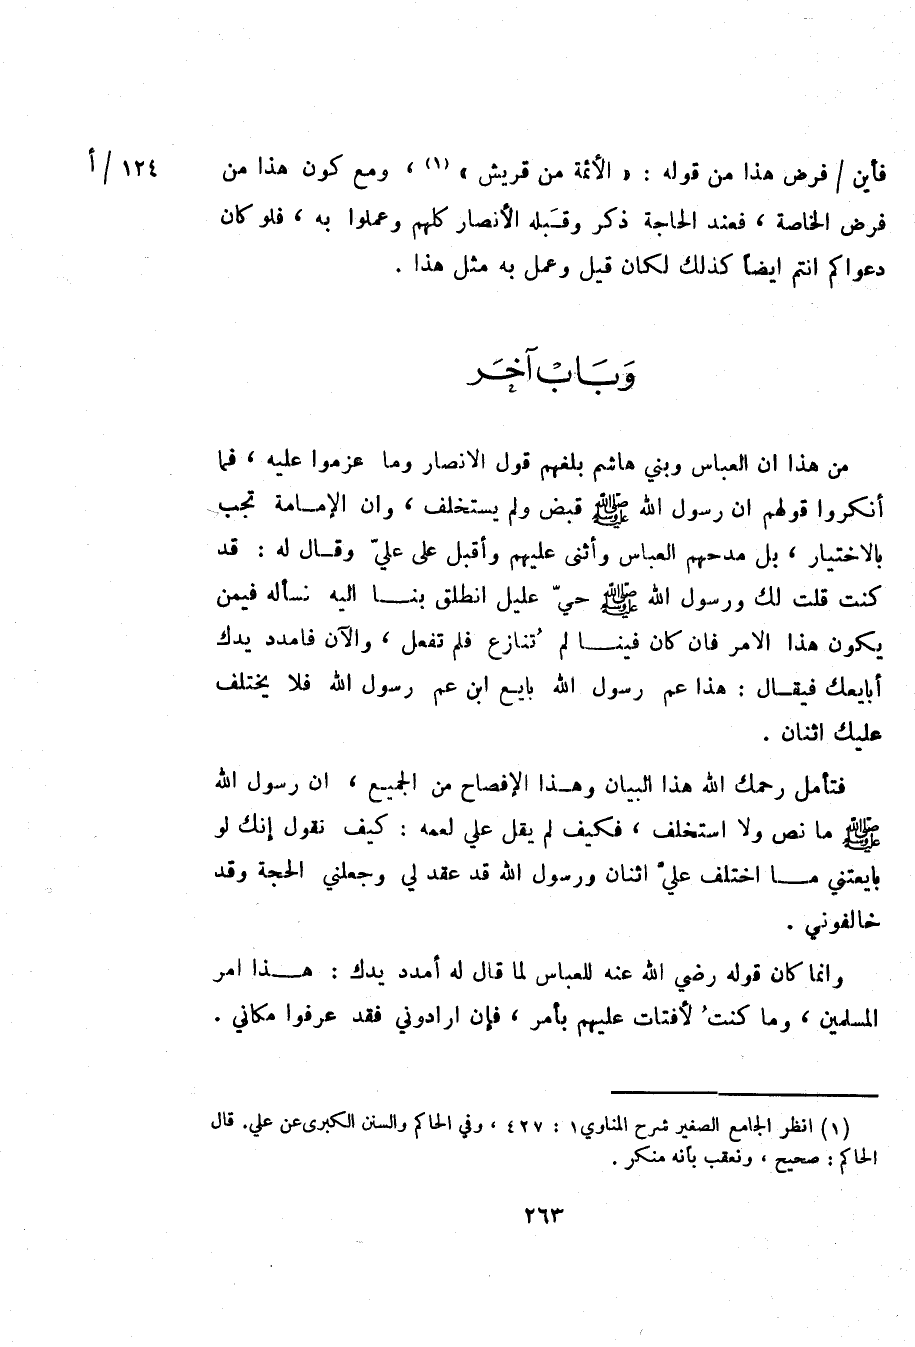 فأين / فرض هذا من قوله : « الأئمة من قريش » (١) ، ومع كون هذا من ١٢٤ / أ
فرض الخاصة ، فعند الحاجة ذكر وقَبله الأنصار كلهم وعملوا به ، فلو كان
دعواكم انتم ايضاً كذلك لكان قيل وعمل به مثل هذا .
وَبَابْ آخَر
من هذا ان العباس وبني هاشم بلغهم قول الانصار وما عزموا عليه ، فما
أنكروا قولهم ان رسول الله ﷺ قبض ولم يستخلف ، وان الإمامة تجب
بالاختيار ، بل مدحهم العباس وأثنى عليهم وأقبل على عليّ وقال له : قد
كنت قلت لك ورسول الله ﷺ حيّ عليل انطلق بنا اليه نسأله فيمن
يكون هذا الامر فان كان فينا لم ُتنازع فلم تفعل ، والآن فامدد يدك
أبايعك فيقال : هذا عم رسول الله بايع ابن عم رسول الله فلا يختلف
عليك اثنان .
فتأمل رحمك الله هذا البيان وهذا الإفصاح من الجميع ، ان رسول الله
ﷺ ما نص ولا استخلف ، فكيف لم يقل علي لعمه : كيف نقول إنك لو
بايعتني ما اختلف عليّ اثنان ورسول الله قد عقد لي وجعلني الحجة وقد
خالفوني .
وانما كان قوله رضي الله عنه للعباس لما قال له أمدد يدك : هذا امر
المسلمين ، وما كنتُ لأفتات عليهم بأمر ، فإن ارادوني فقد عرفوا مكاني .
(١) انظر الجامع الصغير شرح المناوي ١ : ٤٢٧ ، وفي الحاكم والسنن الكبرى عن علي. قال
الحاكم : صحيح ، وتعقب بأنه منكر .
٢٦٣